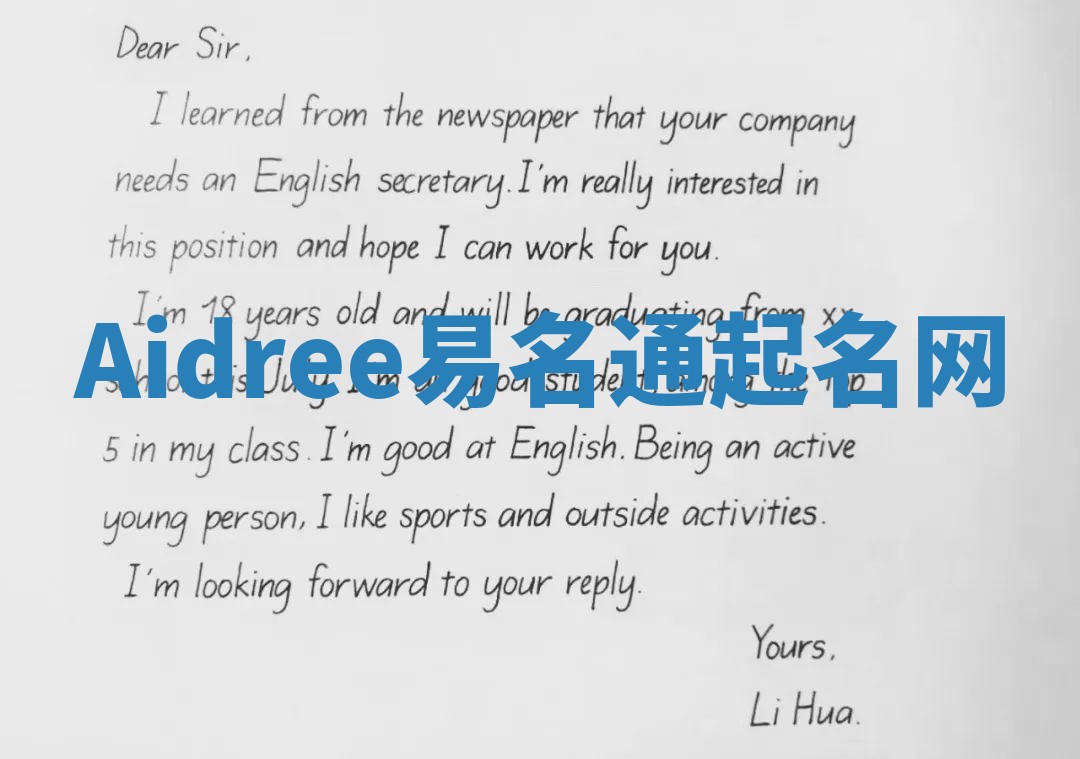 Dear Sir,
I learned from the newspaper that your company
needs an English secretary. I'm really interested in
this position and hope I can work for you.
I'm 18 years old and will be graduating from xx
Aidree易名通起名网
school this July. I'm a good student, among the top
5 in my class. I'm good at English. Being an active
young person, I like sports and outside activities.
I'm looking forward to your reply.
Yours,
Li Hua.